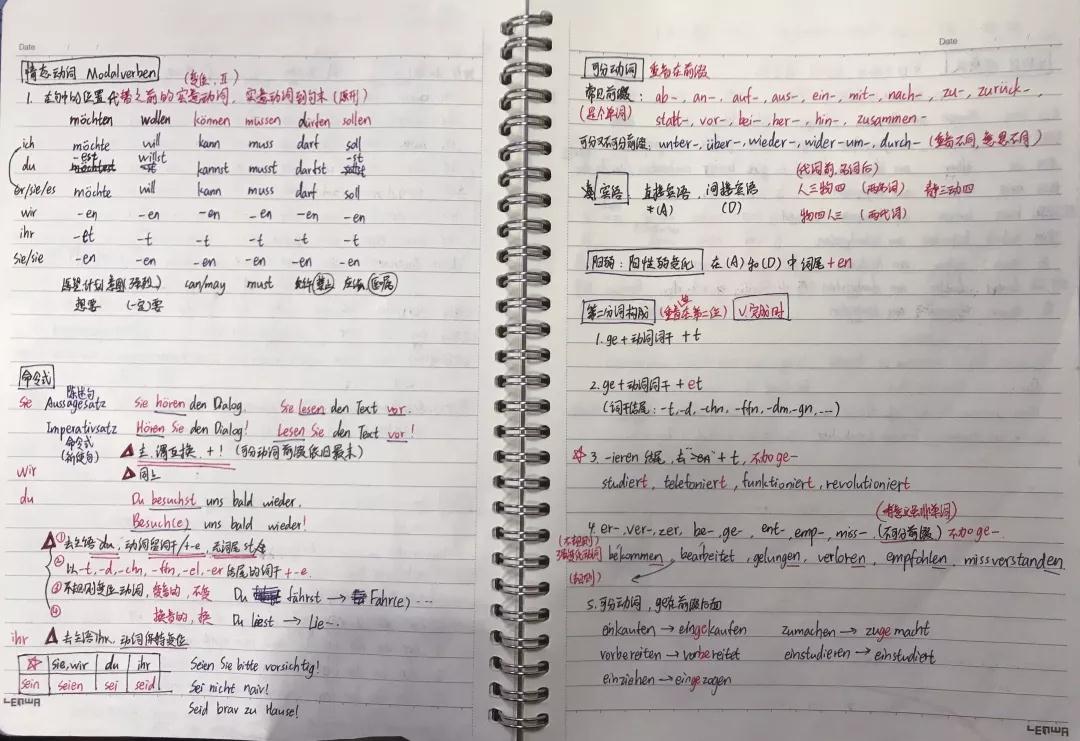 Date
情态动词 Modalverben (变位, II)
1. 在句中的位置代替之前的实意动词, 实意动词到句末 (原形)
möchten wollen können müssen dürfen sollen
ich möchte will kann muss darf soll
du -est willst kannst musst darfst -st
er/sie/es möchte will kann muss darf soll
wir -en -en -en -en -en -en
ihr -et -t -t -t -t -t
sie/sie -en -en -en -en -en -en
愿望 计划 强烈) can/may must 允许 (禁止) 应该
想要 (一定)要
命令式
陈述句
Sie Aussagesatz Sie hören den Dialog. Sie lesen den Text vor.
Imperativsatz Hören Sie den Dialog! Lesen Sie den Text vor!
命令式
(祈使句) 主、谓互换, +! (可分动词前缀依旧最末)
wir 同上
du Du besuchst uns bald wieder.
Besuch(e) uns bald wieder!
① 去主语du, 动词留词干/+-e, 无词尾st
② 以-t, -d, -chn, -ffn, -el, -er 结尾的词干+-e.
③ 不规则变位动词, 变音的, 不变 Du fährst → Fahr(e) ...
④ 换音的, 换 Du liest → Lie-.
ihr 去主语ihr, 动词保持变位
☆ sie, wir du ihr Seien Sie bitte vorsichtig!
sein seien sei seid Sei nicht naiv!
Seid brav zu Hause!
LENWA
Date
可分动词 重音在前缀
常见前缀: ab-, an-, auf-, aus-, ein-, mit-, nach-, zu-, zurück-,
(是个单词) statt-, vor-, bei-, her-, hin-, zusammen-
可分又不可分前缀: unter-, über-, wieder-, wider-um-, durch- (重音不同, 意思不同)
(代词前, 名词后)
宾语 直接宾语 间接宾语 人三物四 (两名词) 静三动四
*(A) (D) 物四人三 (两代词)
阳弱: 阳性弱变化 在(A)和(D)中词尾+en
第二分词构成 (重音在第二位) V.完成时
1. ge+动词词干+t
2. ge+动词词干+et
(词干结尾: -t, -d, -chn, -ffn, -dm, -gn, ...)
☆ 3. -ieren 结尾, 去"-en"+t, 不加ge-
studiert, telefoniert, funktioniert, revolutioniert
4. er-, ver-, zer, be-, ge-, ent-, emp-, miss-, (不可分前缀) 不加ge-.
(不规则)
bekommen, bearbeitet, gelungen, verloren, empfohlen, missverstanden
(规则)
5. 可分动词, ge在前缀后面
einkaufen → eingekaufen zumachen → zugemacht
vorbereiten → vorbereitet einstudieren → einstudiert
einziehen → eingezogen
LENWA